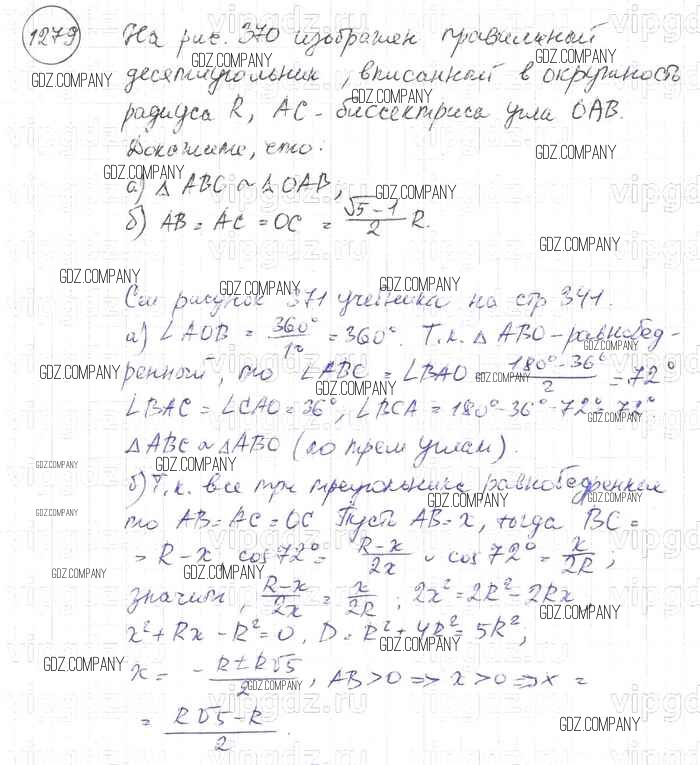 1279 На рис. 370 изображен правильный
десятиугольник, вписанный в окружность
радиуса R, AC - биссектриса угла OAB.
Докажите, что:
а) △ ABC ~ △ OAB;
б) AB = AC = OC = (√5 - 1)/2 R.
См рисунок 371 учебника на стр 341.
а) ∠AOB = 360°/10 = 360°. Т.к. △ ABO - равнобед-
ренный, то ∠ABC = ∠BAO (180° - 36°)/2 = 72°
∠BAC = ∠CAO = 36°, ∠BCA = 180° - 36° - 72° = 72°
△ABC ~ △ABO (по трем углам).
б) Т.к. все три треугольника равнобедренные
то AB = AC = OC Пусть AB = x, тогда BC =
= R - x, cos 72° = (R - x)/2x и cos 72° = x/2R;
значит, (R - x)/2x = x/2R; 2x² = 2R² - 2Rx,
x² + Rx - R² = 0, D = R² + 4R² = 5R²;
x = (-R ± R√5)/2, AB > 0 => x > 0 => x =
= (R√5 - R)/2.
GDZ.COMPANY
vipgdz.ru